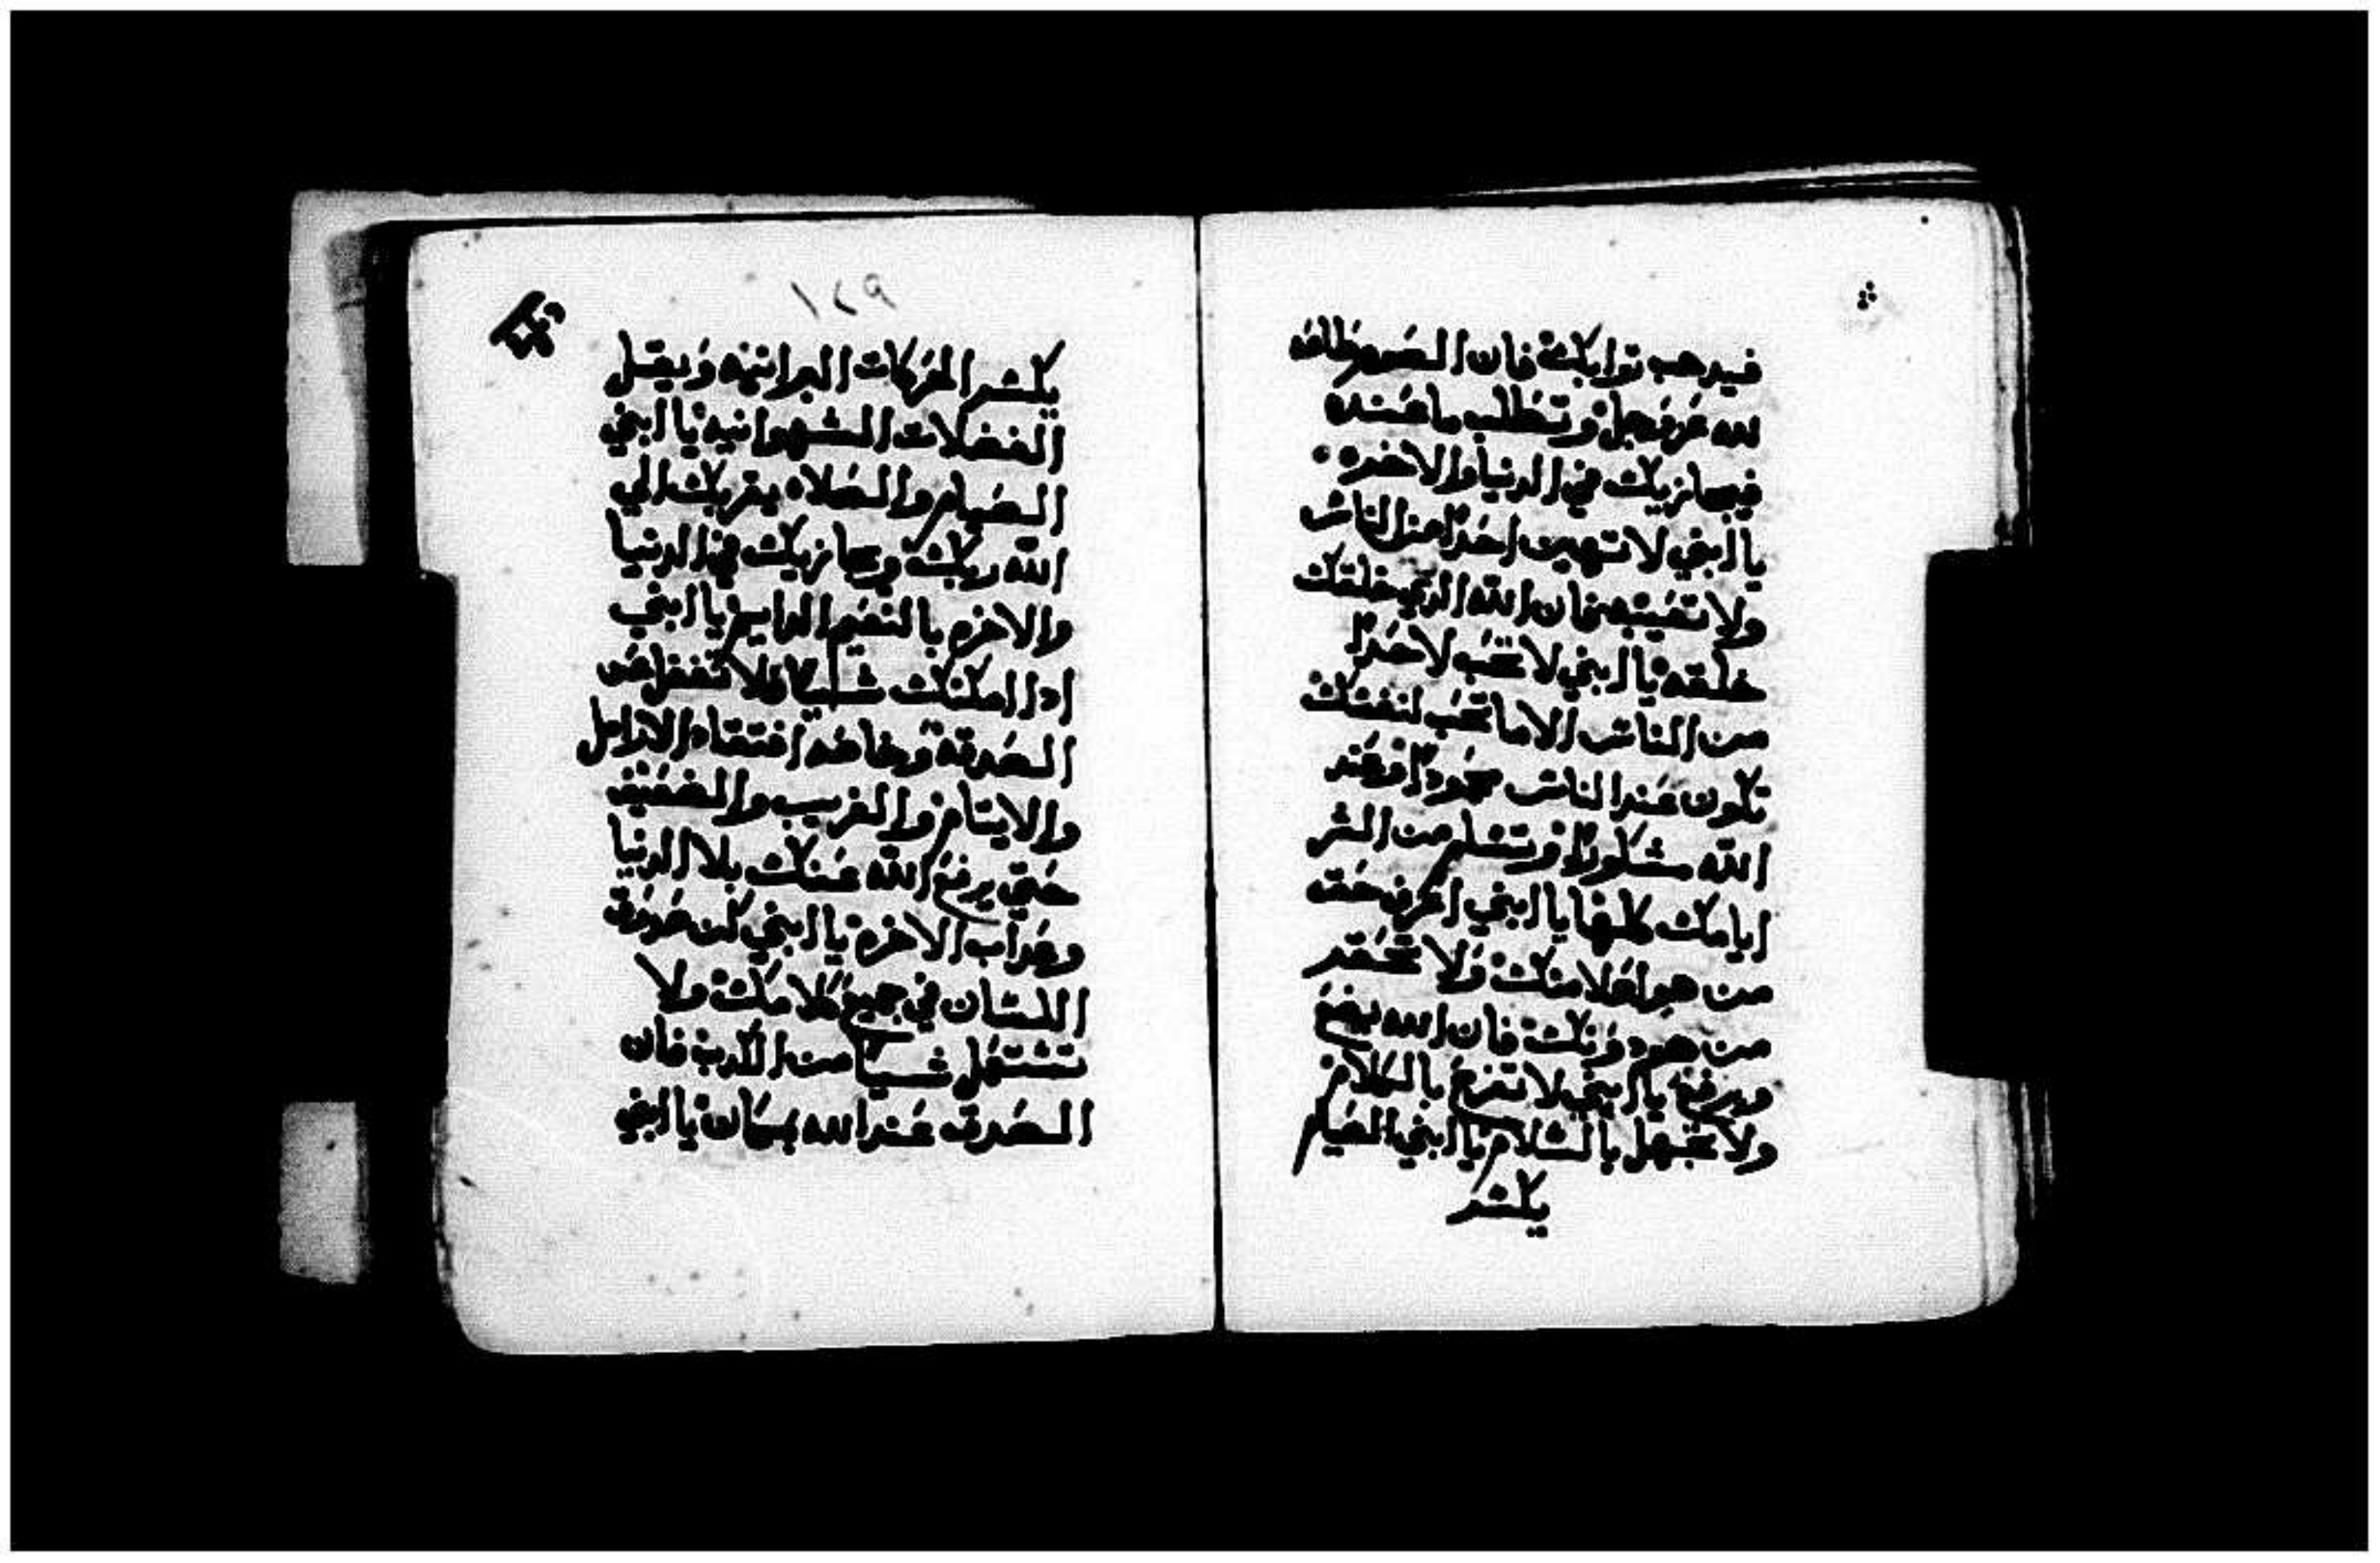 فيدهب توابك فان الصوم طاعه
لله عز وجل وتطلب ما عنده
فيجازيك في الدنيا والاخره
يا ابني لا تهين احدًا من الناس
ولا تعيبه فان الله الدي خلقك
خلقه يا ابني لا تحب لاحدًا
من الناس الا ما تحب لنفسك
تكون عند الناس محمودًا وعند
الله مشكورًا وتسلم من الشر
ايامك كلها يا ابني اعرف حق
من هو اعلا منك ولا تحتقر
من هو دونك فان الله يضع
ويرفع يا ابني لا تفزع بالكلام
ولا تجهل بالسلام يا ابني الصيام
يكسر
١٢٩
يكسر الحركات البرانيه ويقل
الفضلات الشهوانيه يا ابني
الصيام والصلاه يقربك الي
الله ربك ويجازيك في الدنيا
والاخره بالنعيم الدايم يا ابني
ادا امكنك شيا فلا تغفل عن
الصدقه وخاصه افتقاد الارامل
والايتام والغريب والضعيف
حتي يرفع الله عنك بلا الدنيا
وعداب الاخره يا ابني كن صدوق
اللسان في جميع كلامك ولا
تستعمل شيا من الكدب فان
الصدق عند الله بمكان يا ابني